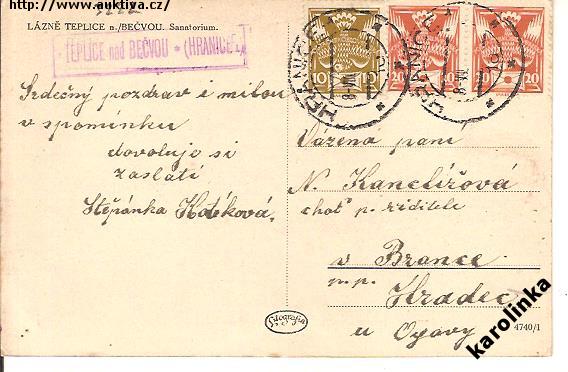 http://www.auktiva.cz/
LÁZNĚ TEPLICE n./BEČVOU. Sanatorium.
TEPLICE nad BEČVOU * (HRANICE)
HRANICE
HRANICE
10 10
20 20
20
Srdečný pozdrav i milou
v spomínku
dovoluje si
zaslati
Štěpánka Kotěková.
Vážená paní
N. Kanclířová
choť p. řiditele
v Brance
p.p. Hradec
u Opavy
Grafografia
4740/1
karolinka